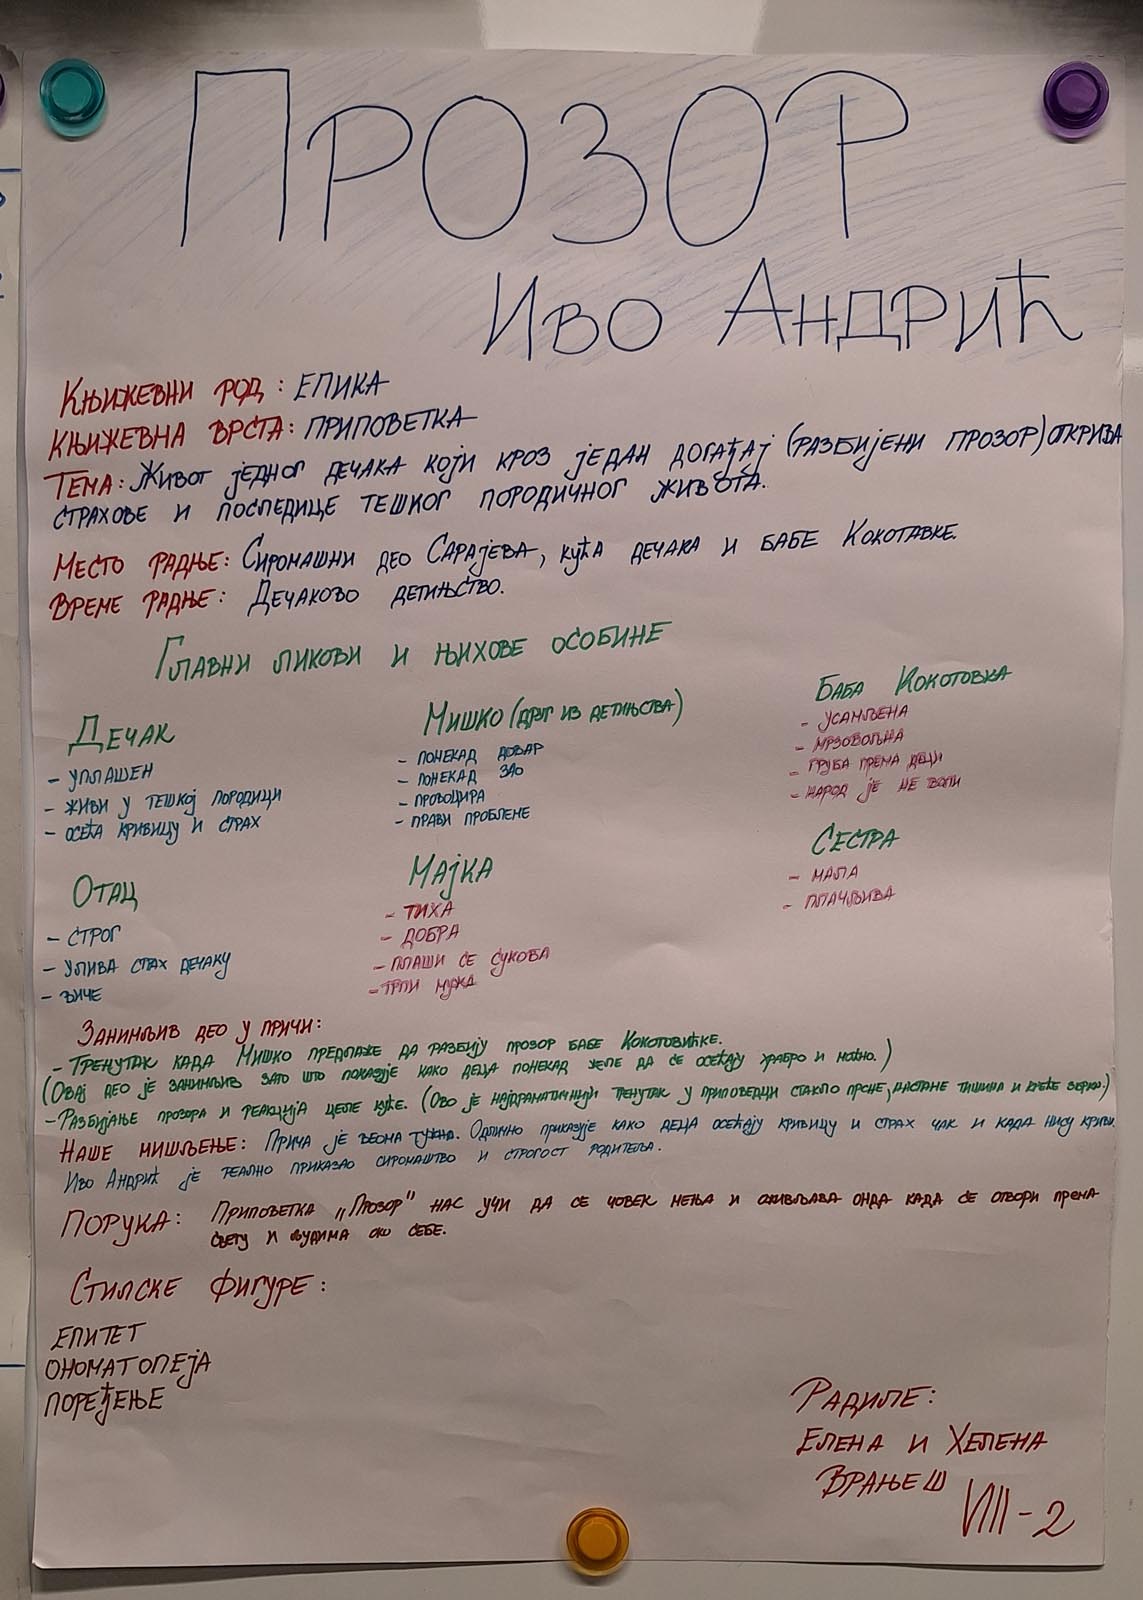 ПРОЗОР
Иво Андрић
Књижевни род: епика
Књижевна врста: приповетка
Тема: Живот једног дечака који кроз један догађај (разбијени прозор) открива
страхове и последице тешког породичног живота.
Место радње: Сиромашни део Сарајева, кућа дечака и бабе Кокотавке.
Време радње: Дечаково детињство.
Главни ликови и њихове особине
Дечак
- уплашен
- живи у тешкој породици
- осећа кривицу и страх
Мишко (друг из детињства)
- понекад добар
- понекад зао
- провоцира
- прави проблене
Баба Кокотовка
- усамљена
- мрзовољна
- груба према деци
- народ је не воли
Отац
- строг
- улива страх дечаку
- виче
Мајка
- тиха
- добра
- плаши се сукоба
- трпи мужа
Сестра
- мала
- плачљива
Занимљив део у причи:
- Тренутак када Мишко предлаже да разбију прозор бабе Кокотовићке.
(Овај део је занимљив зато што показује како деца понекад желе да се осећају храбро и моћно.)
- Разбијање прозора и реакција целе куће. (Ово је најдраматичнији тренутак у приповеци стакло прсне, настане тишина и креће
Наше мишљење: Прича је веома тужна. Одлично приказује како деца осећају кривицу и страх чак и када нису криви.
Иво Андрић је реално приказао сиромаштво и строгост родитеља.
Порука: Приповетка „Прозор" нас учи да се човек мења и оживљава онда када се отвори према
свету и људима око себе.
Стилске фигуре:
епитет
ономатопеја
поређење
Радиле:
Елена и Хелена
Врањеш VIII-2